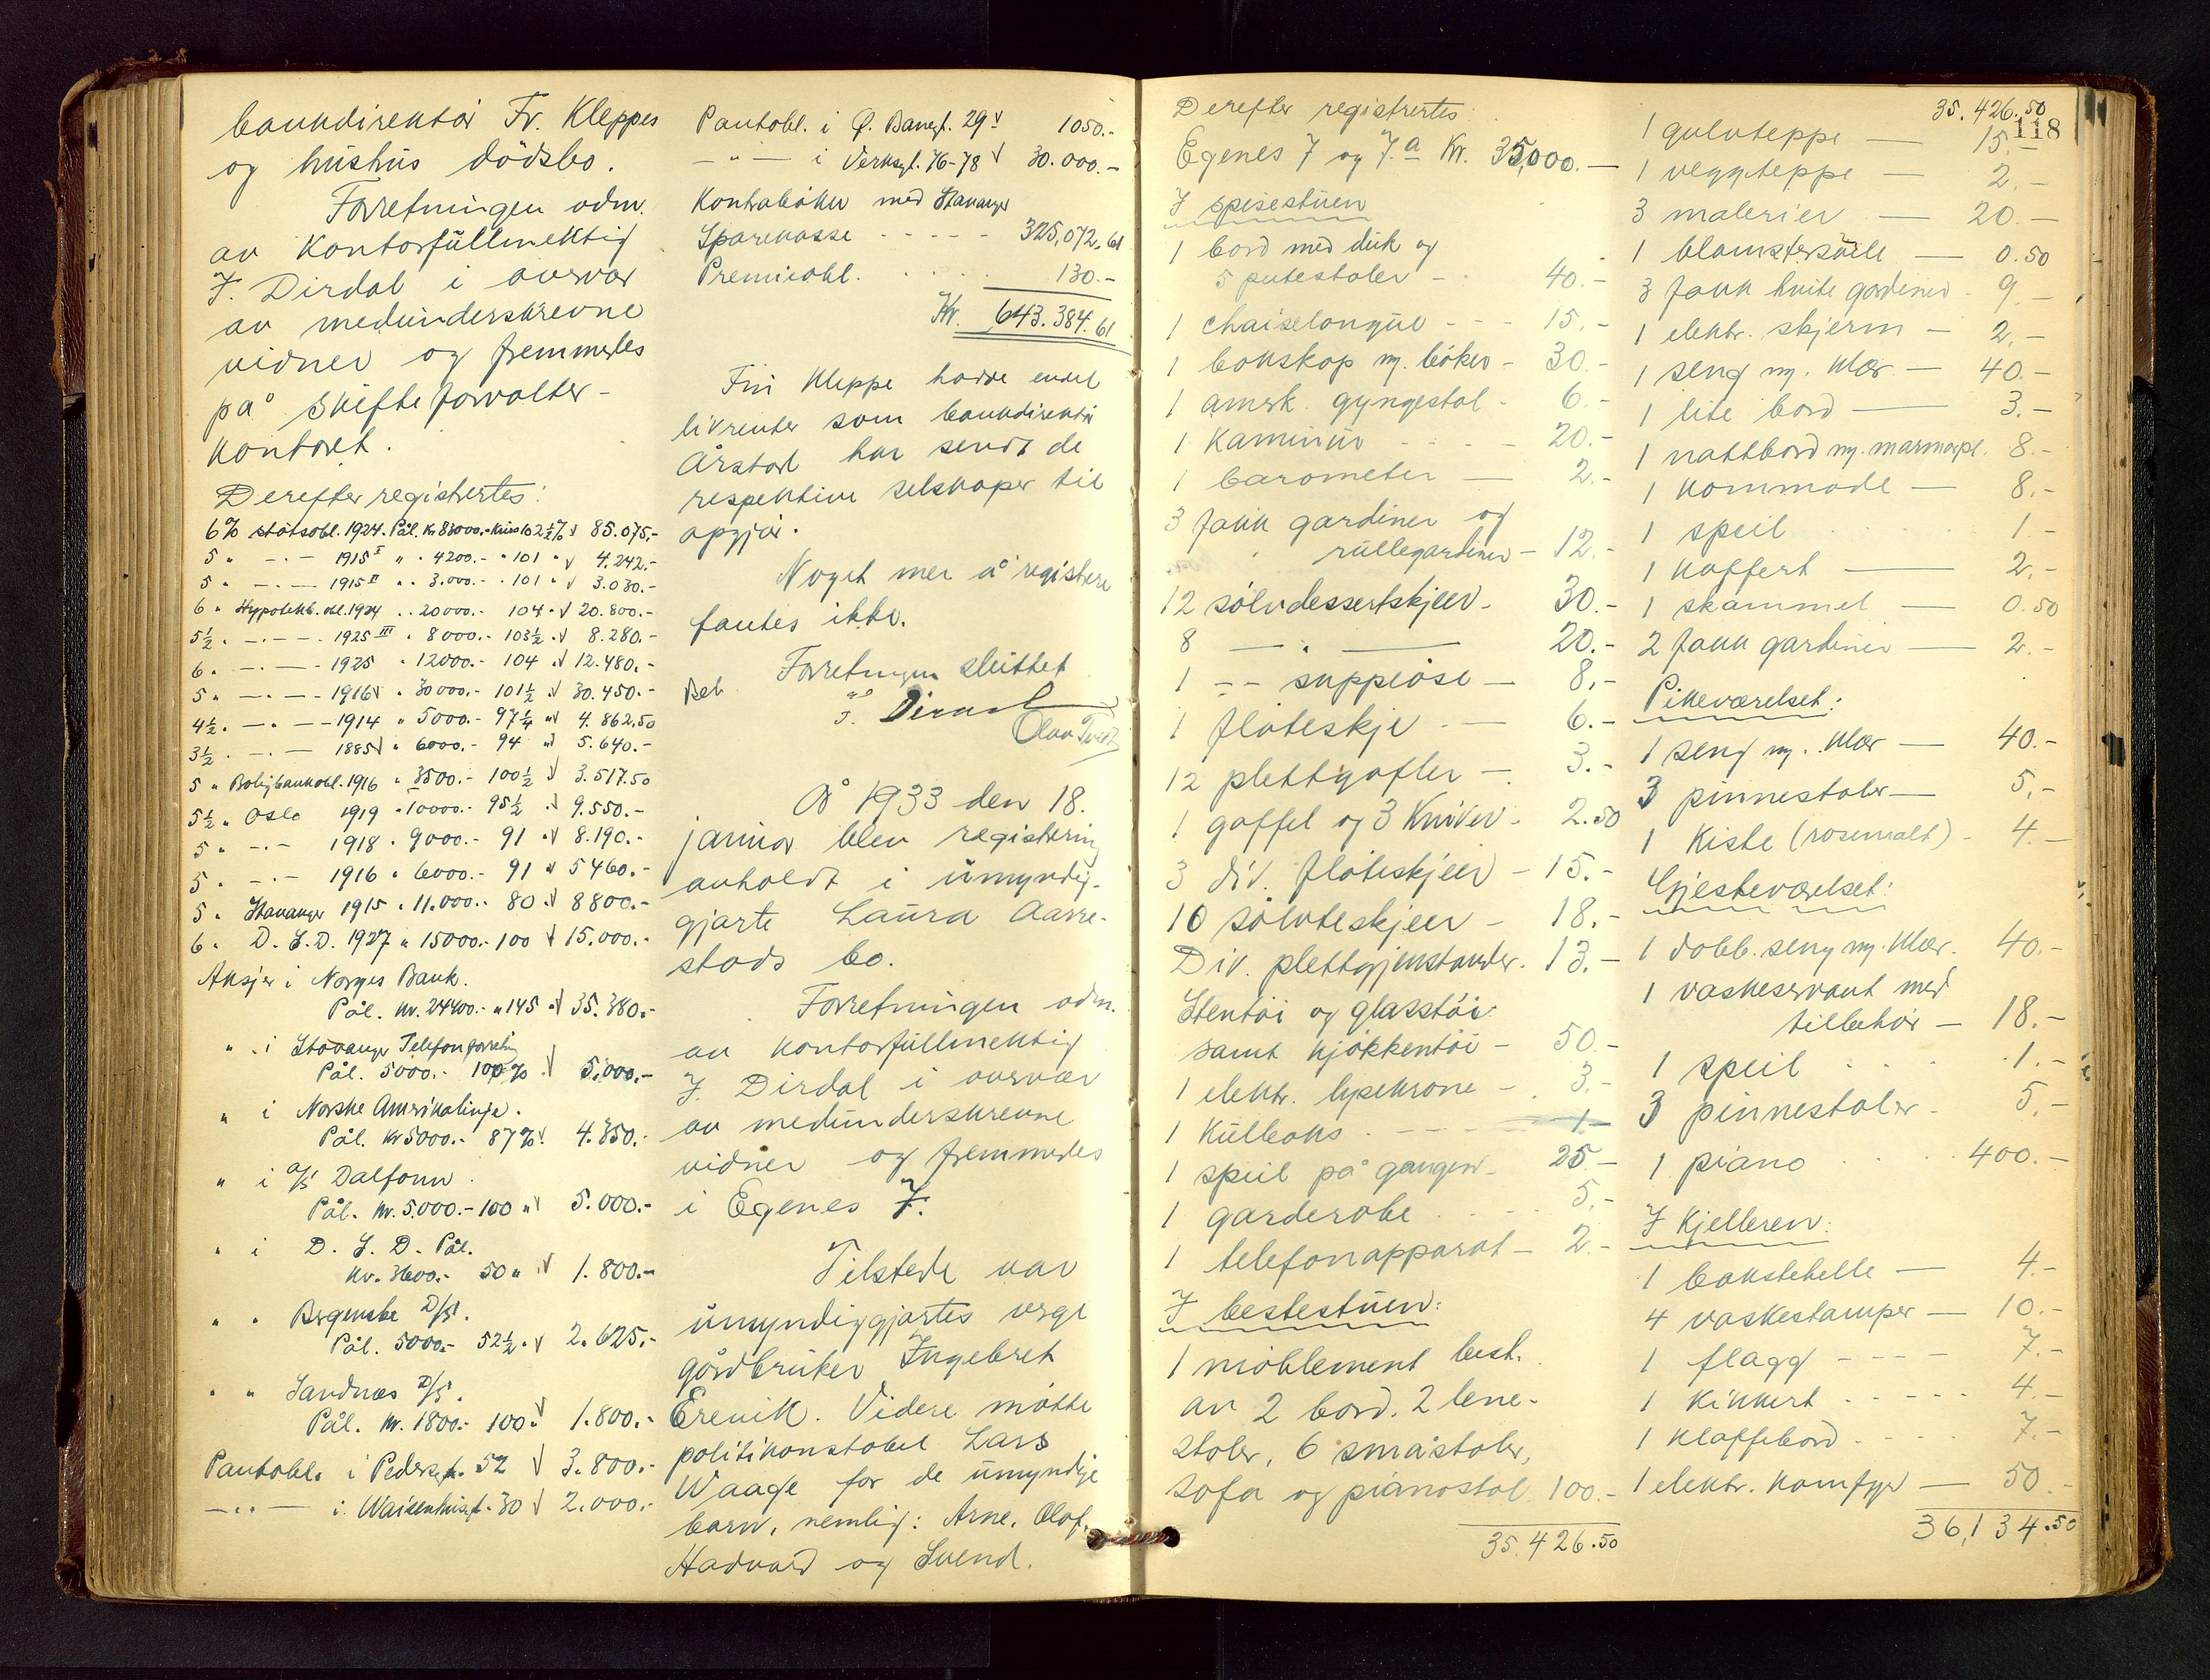 bankdirektör Fr. Kleppes
og hustrus dödsbo.
Forretningen adm.
av kontorfullmektig
J. Dirdal i overvær
av medunderskrevne
vidner og fremmedes
på skifteforvalter-
kontoret.
Derefter registrertes:
6% statsobl. 1924. Pål. Kr 83000.- kurs 102½% √ 85.075.-
5 " -"- 1915 I " " 4200.- " 101 " √ 4.242.-
5 " -"- 1915 II " " 3.000.- " 101 " √ 3.030.-
6 " Hypotekb. obl. 1924 " " 20000.- 104 " √ 20.800.-
5½ " -"- 1925 III " 8000.- 103½ " √ 8.280.-
6 " -"- 1925 " 12000.- 104 " √ 12.480.-
5 " -"- 1916 √ " 30000.- 101½ " √ 30.450.-
4½ " -"- 1914 " 5000.- 97¼ " √ 4.862,50
3½ " -"- 1885 √ " 6000.- 94 " √ 5.640.-
5 " Boligbankobl. 1916 " 3500.- 100½ √ 3.517.50
5½ " Oslo 1919 " 10000.- 95½ " √ 9.550.-
5 " -"- 1918 " 9000.- 91 " √ 8.190.-
5 " -"- 1916 " 6000.- 91 " √ 5460.-
5 " Stavanger 1915 " 11.000.- 80 " √ 8800.-
6 " D. S. D. 1927 " 15000.- 100 √ 15.000.-
Aksjer i Norges Bank.
Pål. kr. 24400.- " 145 " √ 35.380.-
" i Stavanger Telefonforretning
Pål. 5000.- 100% √ 5.000.-
" i Norske Amerikalinje.
Pål. Kr 5000.- 87% √ 4.350.-
" i A/S Dalfonn
Pål. kr. 5.000.- 100 " √ 5.000.-
" i D. S. D. Pål.
kr. 3600.- 50 " √ 1.800.-
" " Bergenske D/S.
Pål. 5000.- 52½ " √ 2.625.-
" " Sandnes D/S.
Pål. kr. 1800.- 100 " √ 1.800.-
Pantobl. i Pedersgt. 52 √ 3.800.-
-"- i Waisenhusgt. 30 √ 2.000.-
Pantobl. i Ø. Banegt. 29 √ 1050.-
-"- i Verksgt. 76-78 √ 30.000.-
Kontrabøker med Stavanger
Sparekasse - - - - - 325,072.61
Premieobl. . . . . . 130.-
Kr. 643.384.61
Fru Kleppe hadde endel
livrenter som bankdirektör
Årstad har sendt de
respektive selskaper til
opgjör.
Noget mer å registrere
fantes ikke.
Forretningen sluttet
J. Dirdal
Olav Tveit
År 1933 den 18.
januar blev registrering
avholdt i umyndig-
gjorte Laura Aarre-
stads bo.
Forretningen adm.
av kontorfullmektig
J. Dirdal i overvær
av medunderskrevne
vidner og fremmedes
i Egenes 7.
Tilstede var
umyndiggjortes verge
gårdbruker Ingebret
Erevik. Videre møtte
politikonstabel Lars
Waage for de umyndige
barn, nemlig: Arne, Olaf,
Hadvard og Svend.
Derefter registrertes:
Egenes 7 og 7.a Kr. 35,000.-
I spisestuen
1 bord med duk og
5 putestoler - - 40.-
1 chaiselongue - - - 15.-
1 bokskap m. böker - 30.-
1 amerk. gyngestol - 6.-
1 Kaminur - - - - 20.-
1 barometer - 2.-
3 fakk gardiner og
rullegardiner - 12.-
12 sölvdessertskjeer - 30.-
8 -"- 20.-
1 -"- suppeöse - 8,-
1 flöteskje - - 6.-
12 plettgafler - 3.-
1 gaffel og 3 Kniver - 2.50
3 div. flöteskjeer - 15.-
10 sölvteskjeer - 18.-
Div. plettgjenstander. 13.-
Stentöi og glasstöi
samt kjökkentöi - 50.-
1 elektr. lysekrone - 3.-
1 Kulboks - - - - 1.-
1 speil på gangen - 25.-
1 garderobe . . . . 5.-
1 telefonapparat - 2.-
I bestestuen:
1 möblement best.
av 2 bord, 2 lene-
stoler, 6 småstoler,
sofa og pianostol. 100.-
35.426.50
35.426.50
118
1 gulvteppe - 15.-
1 veggteppe - 2.-
3 malerier - 20.-
1 blomstersöile - 0.50
3 fakk hvite gardiner - 9.-
1 elektr. skjerm - 2.-
1 seng m. klær - 40.-
1 lite bord - 3.-
1 nattbord m. marmorpl. 8.-
1 kommode - 8.-
1 speil . . . . . 1.-
1 koffert - 2.-
1 skammel - 0.50
2 fakk gardiner - 2.-
Pikeværelset:
1 seng m. klær - 40.-
3 pinnestoler - 5.-
1 Kiste (rosemalt) - 4.-
Gjesteværelset:
1 dobb. seng m. klær. 40.-
1 vaskeservant med
tilbehör - 18.-
1 speil . . . . 1.-
3 pinnestoler - 5.-
1 piano . . . . 400.-
I Kjelleren:
1 bakstehelle - 4.-
4 vaskestamper - 10.-
1 flagg - - - - 7.-
1 Kikkert - - - - - 4.-
1 klaffebord . . . . 7.-
1 elektr. komfyr - 50.-
36,134.50